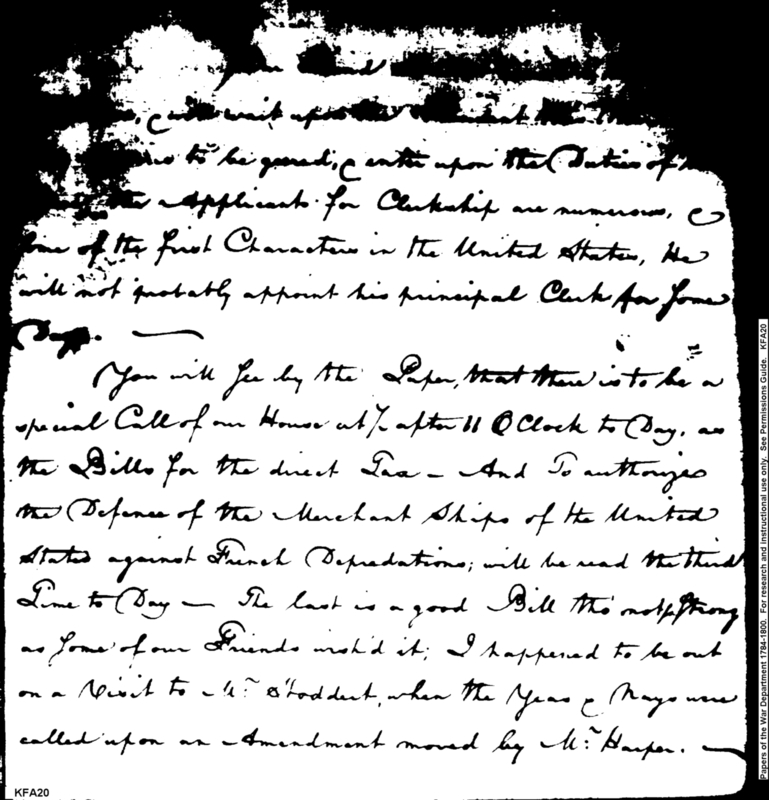 your
wait upon the President this
is to be geered, & enter upon the Duties of
the Applicants for Clerkship are numerous, &
some of the first Characters in the United States, He
will not probably appoint his principal Clerk for some
Days. —
You will see by the Paper, that there is to be a
special Call of our House at ½ after 11 O Clock to Day, as
the Bills for the direct Tax — And To authorize
the Defence of the Merchant Ships of the United
States against French Depredations; will be read the third
Time to Day — The last is a good Bill tho' not so strong
as some of our Friends wish'd it; I happened to be out
on a Visit to Mr. Stoddert, when the Yeas & Nays were
called upon an Amendment moved by Mr. Harper. —
KFA20
Papers of the War Department 1784-1800. For research and instructional use only. See Permissions Guide. KFA20